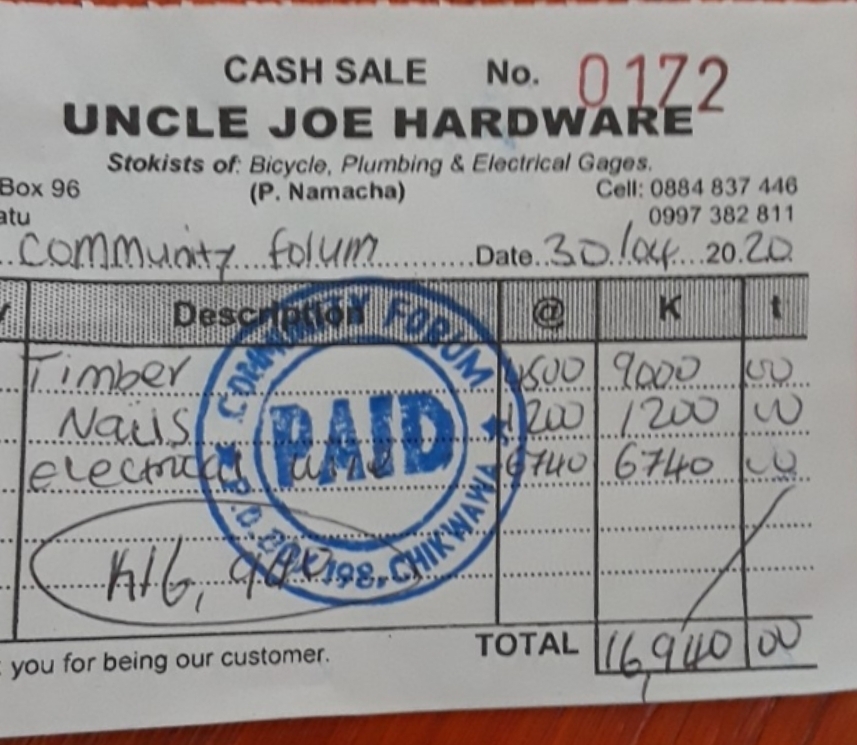 CASH SALE No. 0172
UNCLE JOE HARDWARE
Stokists of: Bicycle, Plumbing & Electrical Gages.
Box 96 (P. Namacha) Cell: 0884 837 446
atu 0997 382 811
Community folum Date 30/04 2020
Description @ K t
Timber 4500 9000 00
Nails 1200 1200 00
electrical wire 6740 6740 00
K16,940
COMMUNITY FORUM
PAID
P.O. BOX 198, CHIKWAWA
you for being our customer. TOTAL 16,940 00